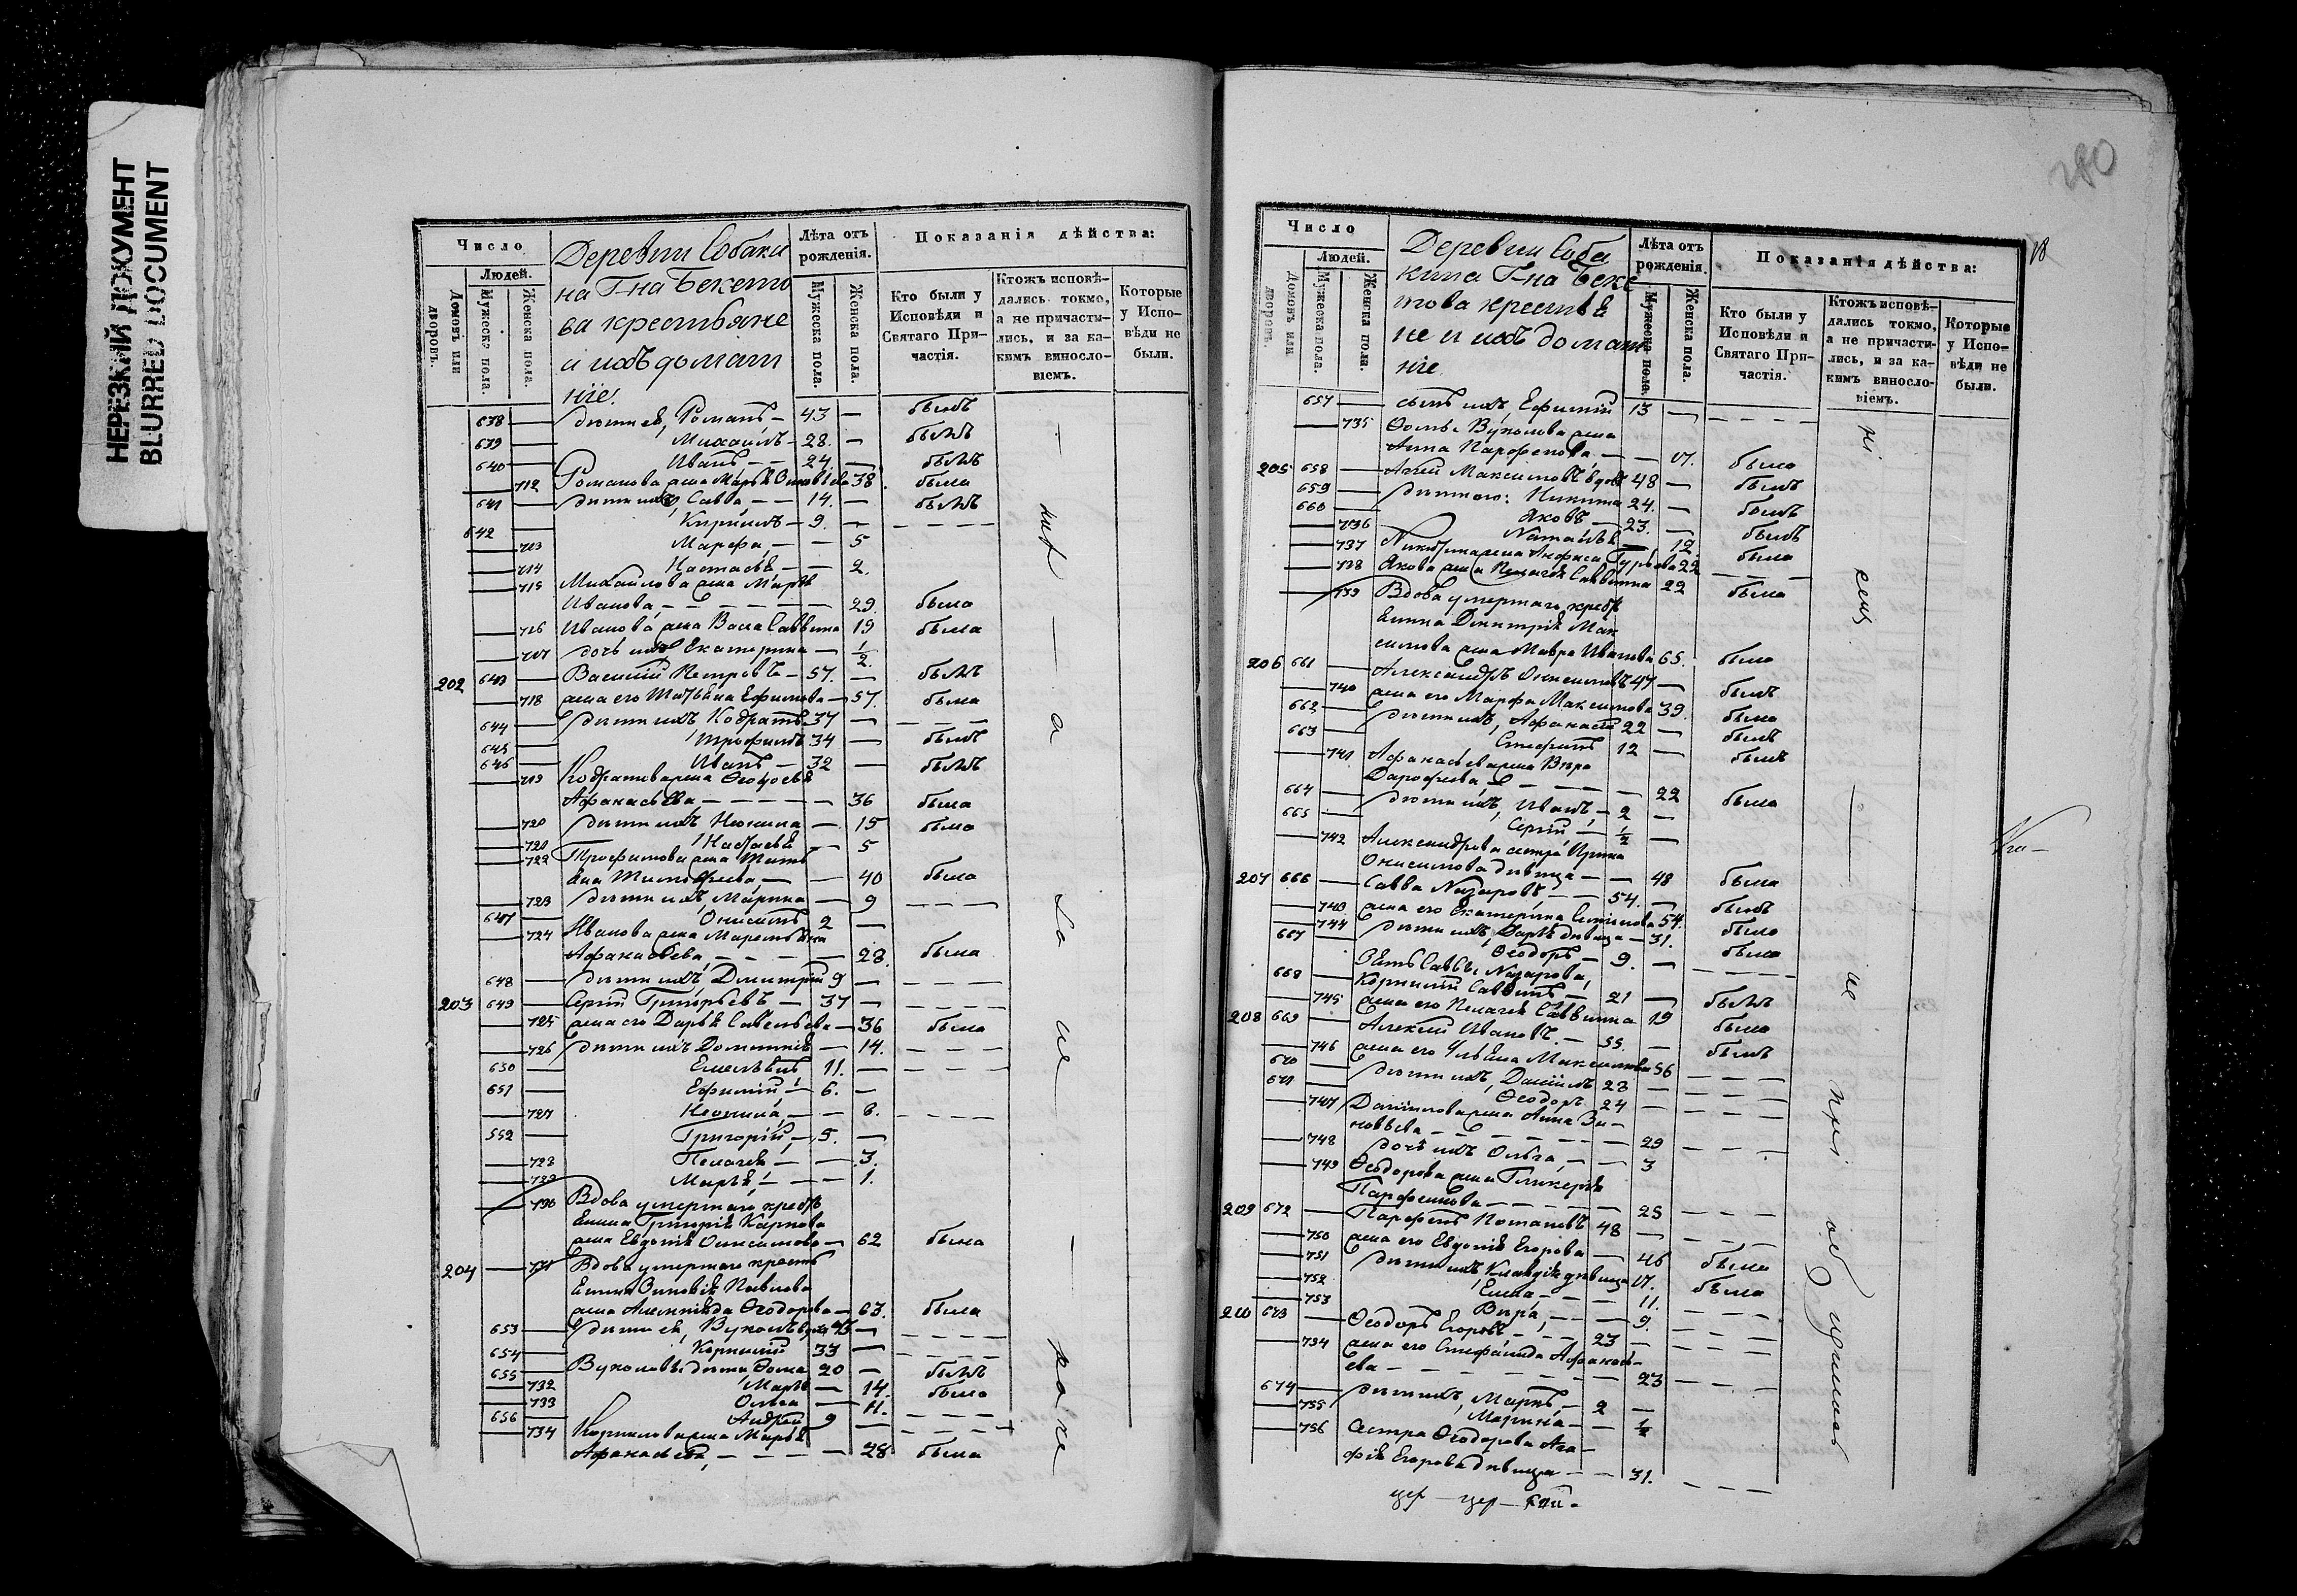 НЕРЕЗКИЙ ДОКУМЕНТ
BLURRED DOCUMENT
Число
Людей.
Домовъ или дворовъ.
Мужеска пола.
Женска пола.
Деревни Собаки
на Г-на Бекето
ва крестьяне
и ихъ домаш
ніе.
Лѣта отъ рожденія.
Мужеска пола.
Женска пола.
Показанія дѣйства:
Кто были у Исповѣди и Святаго Причастія.
Ктожъ исповѣдались токмо, а не причастились, и за какимъ винословіемъ.
Которые у Исповѣди не были.
638 — дѣти ея, Романъ — 43 — былъ
639 — Михаилъ — 28. — былъ
640 — Иванъ — — 24. — былъ
— 712 Романова жена Марья 38 была
641 — дѣти ихъ, Савва — — 14. — былъ
642 — Кирилъ — 9. — — — —
— 713 Марфа, — — 5
— 714 Настасья — — 2.
— 715 Михайлова жена Марья
Иванова, — — — — 29. была
— 716 Иванова жена Васса Саввина 19 была
— 717 дочь ихъ Екатерина — ½.
202 643 — Василій Петровъ — 57. — былъ
— 718 жена его Татьяна Ефимова — 57. была
644 — дѣти ихъ Кодратъ 37 — — — —
645 — Трофимъ 34 — былъ
646 — Иванъ — 32 — былъ
— 719 Кодратова жена Ѳеодосья
Афанасьева — — — — — 36 была
— 720 дѣти ихъ Неонила — 15 была
— 721 Настасья — 5
— 722 Трофимова жена Татья
на Тимофеева, — — 40 была
— 723 дѣти ихъ, Марина — 9 — — —
647 — Онисимъ 2 —
— 724 Иванова жена
Афанасьева, — — — — 28. была
648 — дѣти ихъ, Димитрій 9 — — — —
203 649 — Сергій Григорьевъ — 37 — — — —
— 725 жена его Дарья Савельева — 36 была
— 726 дѣти ихъ Домникія — 14. — — —
650 — Емельянъ 11. — — — —
651 — Ефимій, — 6. —
— 727 Неонила, — — 8. — — —
552 — Григорій, — 5. —
— 728 Пелагея — — 3.
— 729 Марья — — 1.
— 730 Вдова умершаго крестья
нина Григорія Карпова
жена Евдокія Онисимова — 62 была
204 — 731 Вдова умершаго кресть
янина Зиновія Павлова
жена Ѳеодорова — 63. была
653 — дѣти ея, Вуколъ вдовъ 45 — — — —
654 — Корнилій 33 — — — —
655 — Вуколовы дѣти Ѳома 20 — былъ
— 732 Марья — 14. была
— 733 Ольга — 11.
656 — Андрей 9 — — — —
— 734 Корнилова жена Марья
Афанасьева, — — — — 28 была
280
18
Число
Людей.
Домовъ или дворовъ.
Мужеска пола.
Женска пола.
Деревни Соба
кина Г-на Беке
това крестья
не и ихъ домаш
ніе.
Лѣта отъ рожденія.
Мужеска пола.
Женска пола.
Показанія дѣйства:
Кто были у Исповѣди и Святаго Причастія.
Ктожъ исповѣдались токмо, а не причастились, и за какимъ винословіемъ.
Которые у Исповѣди не были.
657 — сынъ ихъ, Ефимій 13 — — — —
— 735 Ѳомы Вуколова жена
Анна Парфенова, — — 17. была
205 658 — Максимовъ вдовъ 48 — былъ
659 — дѣти его: Никита 24. — былъ
660 — Яковъ — 23. — былъ
— 736 Наталья — 12. была
— 737 Никитина жена Анфиса Гурьева 22 — — —
— 738 Якова жена Пелагея Саввина 22 была
— 739 Вдова умершаго кресть
янина Димитрія Мак
симова жена Мавра Иванова 65. была
206 661 — Александръ Онисимовъ 47 — былъ
— 740 жена его Марфа Максимова 39. была
662 — дѣти ихъ, Афанасій 22 — былъ
663 — Стефанъ 12 — былъ
— 741 Афанасьева жена Вѣра
Дорофеева, — — — — 22 была
664 — дѣти ихъ, Иванъ, — 2 —
665 — Сергій, — ½ —
— 742 Александрова сестра Ирина
Онисимова дѣвица — — 48 была
207 666 — Савва Назаровъ, — — 54. — былъ
— 743 жена его Екатерина Семіонова 54. была
— 744 дѣти ихъ, Дарья дѣвица — 31. была
667 — Ѳеодоръ — 9. — — — —
Зять Саввы Назарова,
668 — Корнилій Саввинъ — 21 — былъ
— 745 жена его Пелагея Саввина 19 была
208 669 — Алексій Ивановъ. — 55. — былъ
— 746 жена его Ульяна Максимова 56 — — —
670 — дѣти ихъ, Даніилъ 28 — — — —
671 — Ѳеодоръ 24 — — — —
— 747 Даніилова жена Анна Зи-
новьева — — — — — 29 — — —
— 748 дочь ихъ Ольга, — — 3
— 749 Ѳеодорова жена Гликерія
Парфенова — — — — — 25 — — —
209 672 — Парфенъ Потаповъ 48 —
— 750 жена его Евдокія Егорова — 46 была
— 751 дѣти ихъ, Клавдія дѣвица 17. была
— 752 Елена — — — 11. — — —
— 753 Вѣра, — — — 9. — — —
210 673 — Ѳеодоръ Егоровъ — — 23 — — — —
— 754 жена его Стефанида Афанась-
ева — — — — — 23 — — —
674 — дѣти ихъ, Маркъ, — 2 —
— 755 Марина — — ½
— 756 Сестра Ѳеодорова Ага-
фія Егорова дѣвица — — 31. — — —